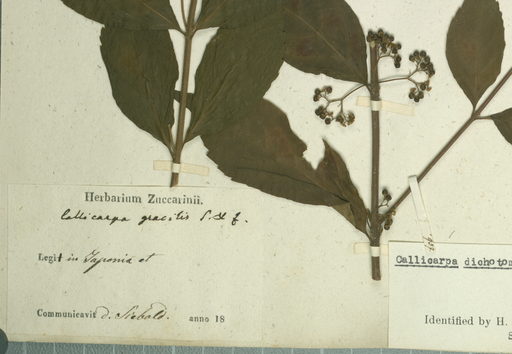 Herbarium Zuccarinii.
Callicarpa gracilis S. & Z.
Legit in Japonia et
Communicavit d. Siebold. anno 18
Callicarpa dichotom
Identified by H.
S